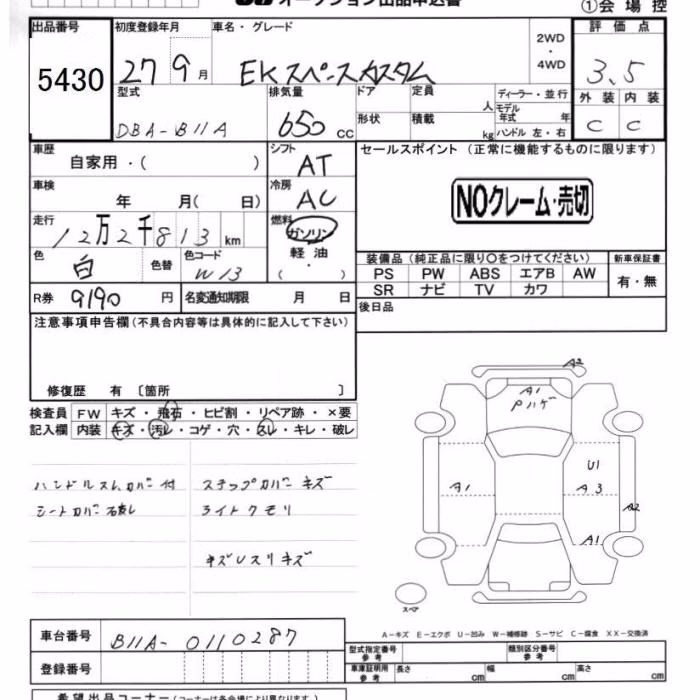 オークション出品申込書
①会場控
出品番号
5430
初度登録年月
27 9月
車名・グレード
EKスペースカスタム
2WD
・
4WD
評価点
3.5
外装 内装
C C
型式
DBA-B11A
排気量
650 cc
ドア
定員
人
形状
積載
kg
ディーラー・並行
モデル年式 年
ハンドル 左・右
車歴
自家用・( )
シフト
AT
車検
年 月( 日)
冷房
AC
走行
12万2千813 km
燃料
ガソリン
軽油
・
( )
色
白
色替
色コード
W13
R券
9190 円
名変通知期限 月 日
セールスポイント (正常に機能するものに限ります)
NOクレーム・売切
装備品 (純正品に限り○をつけてください)
新車保証書
PS PW ABS エアB AW
SR ナビ TV カワ
有・無
後日品
注意事項申告欄 (不具合内容等は具体的に記入して下さい)
修復歴 有 〔箇所 〕
検査員記入欄
FW キズ・飛石・ヒビ割・リペア跡・×要
内装 キズ・汚レ・コゲ・穴・スレ・キレ・破レ
ステップカバーキズ
シートカバー
ライトクモリ
A2
A1
Pハゲ
U1
A1
A3
A2
A1
スペア
A-キズ E-エクボ U-凹み W-補修跡 S-サビ C-腐食 XX-交換済
車台番号
B11A-0110287
登録番号
型式指定番号 参考
類別区分番号 参考
車庫証明用 参考
長さ cm
幅 cm
高さ cm
希望出品コーナー(コーナーは各会場により異なります)